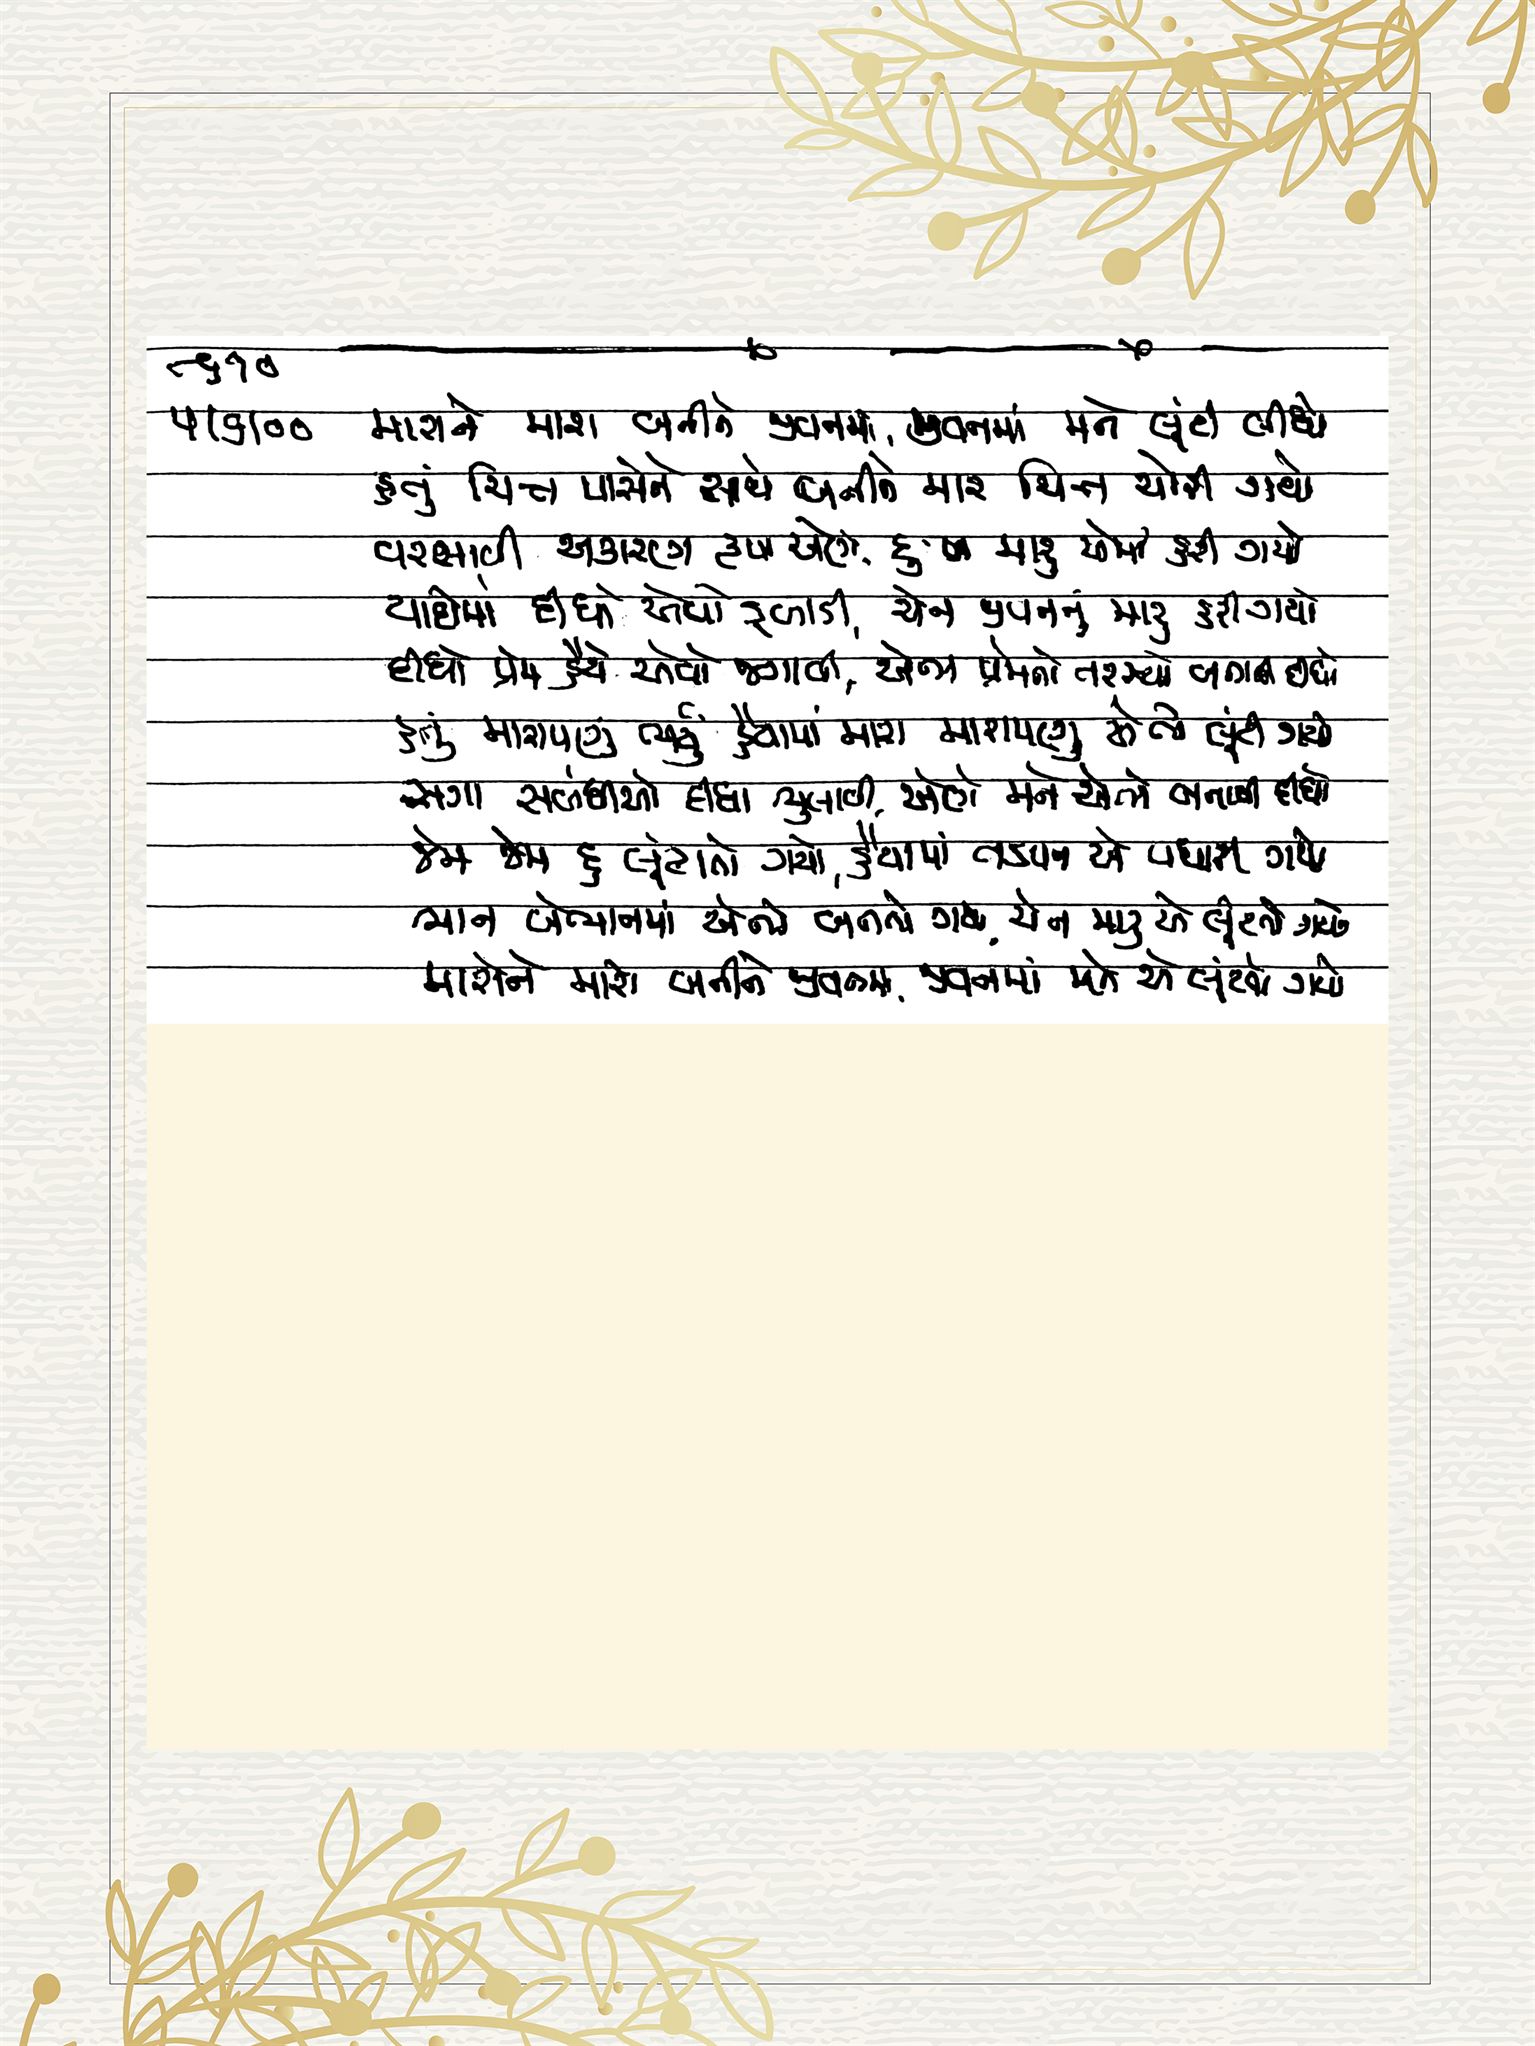 ૮૬૧૦
૫/૬/૦૦ મારોને મારો બનીને જીવનમાં, જીવનમાં મને લૂંટી લીધો
હતું ચિત્ત પાસેને સાથે બનીને મારું ચિત્ત ચોરી ગયો
વરસાવી અકારણ કૃપા એણે, દુઃખ મારું એમાં હરી ગયો
યાદોમાં દીધો એવો રૂબાડી, ચેન જીવનનું મારું હરી ગયો
દીધો પ્રેમ હૈયે એવો જગાવી, એના પ્રેમનો તરસ્યો બનાવી દીધો
હતું મારાપણું ભર્યું હૈયામાં મારા મારાપણું એ તો લૂંટી ગયો
સગા સબંધીઓ દીધા ભુલાવી, એણે મને એનો બનાવી દીધો
જેમ જેમ હું લૂંટાતો ગયો, હૈયામાં તડપન એ વધારી ગયો
ભાન બેભાનમાં એનો બનતો ગયો, ચેન મારું એ લૂંટતો ગયો
મારોને મારો બનીને જીવનમાં, જીવનમાં મને એ લૂંટતો ગયો